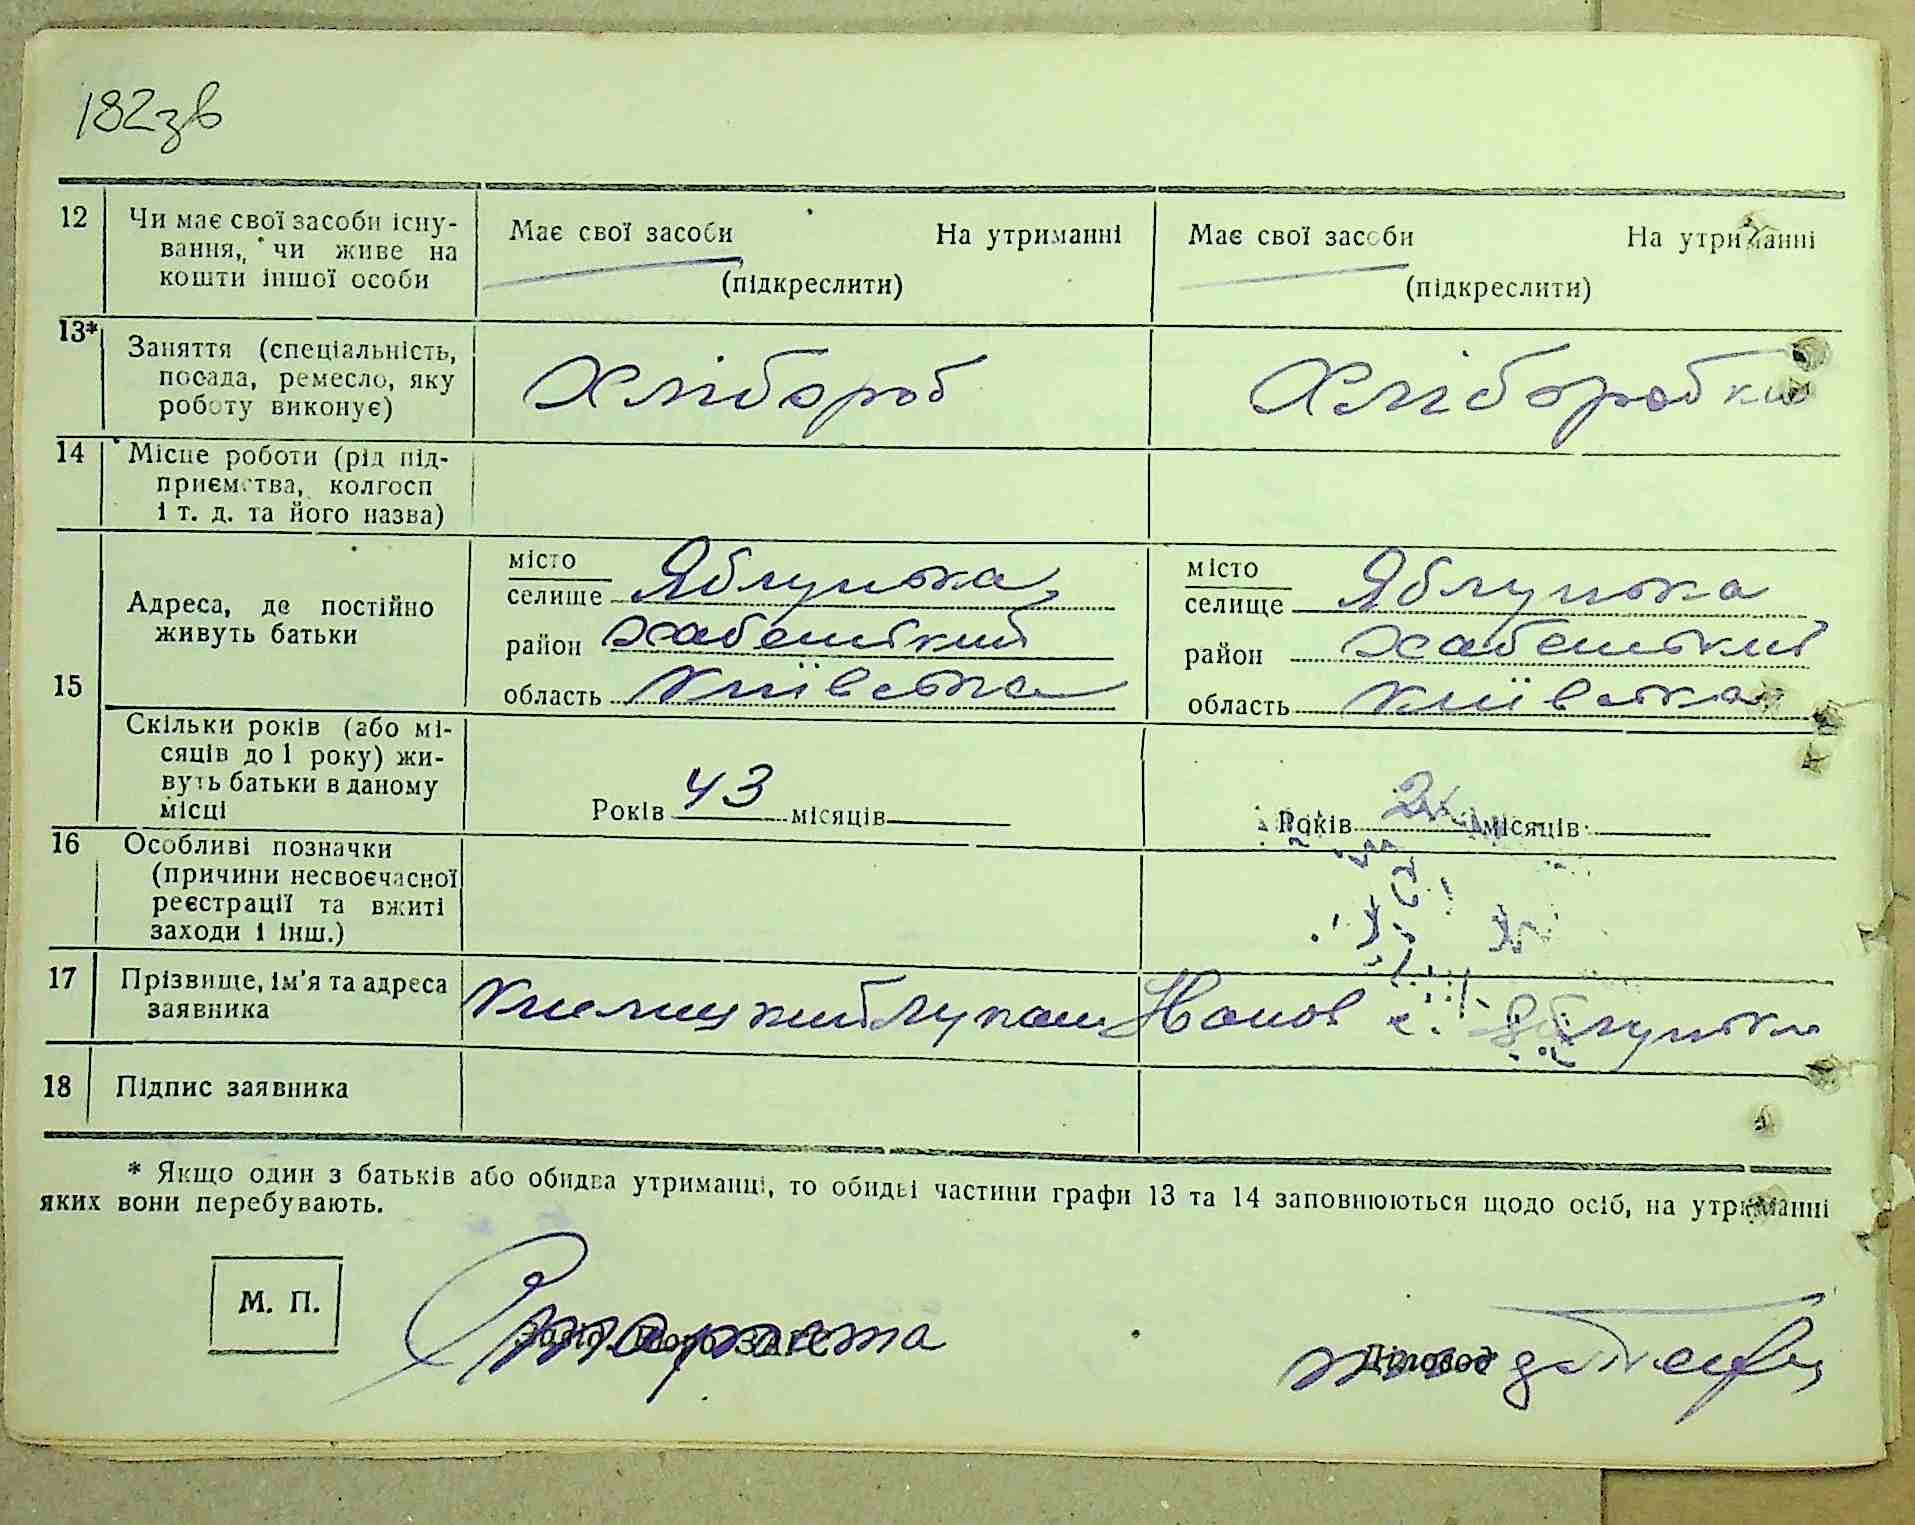 182зв
12 Чи має свої засоби існу-
вання, чи живе на
кошти іншої особи
Має свої засоби На утриманні
(підкреслити)
Має свої засоби На утриманні
(підкреслити)
13* Заняття (спеціальність,
посада, ремесло, яку
роботу виконує)
Хлібороб
Хліборобка
14 Місце роботи (рід під-
приємства, колгосп
і т. д. та його назва)
15
Адреса, де постійно
живуть батьки
місто
селище Яблунька
район Хабенський
область Київська
місто
селище Яблунька
район Хабенський
область Київська
Скільки років (або мі-
сяців до 1 року) жи-
вуть батьки в даному
місці
Років 43 місяців
Років місяців
16 Особливі позначки
(причини несвоєчасної
реєстрації та вжиті
заходи і інш.)
17 Прізвище, ім'я та адреса
заявника
с. Яблунька
18 Підпис заявника
* Якщо один з батьків або обидва утриманці, то обидві частини графи 13 та 14 заповнюються щодо осіб, на утриманні
яких вони перебувають.
М. П.
Староста
Діловод